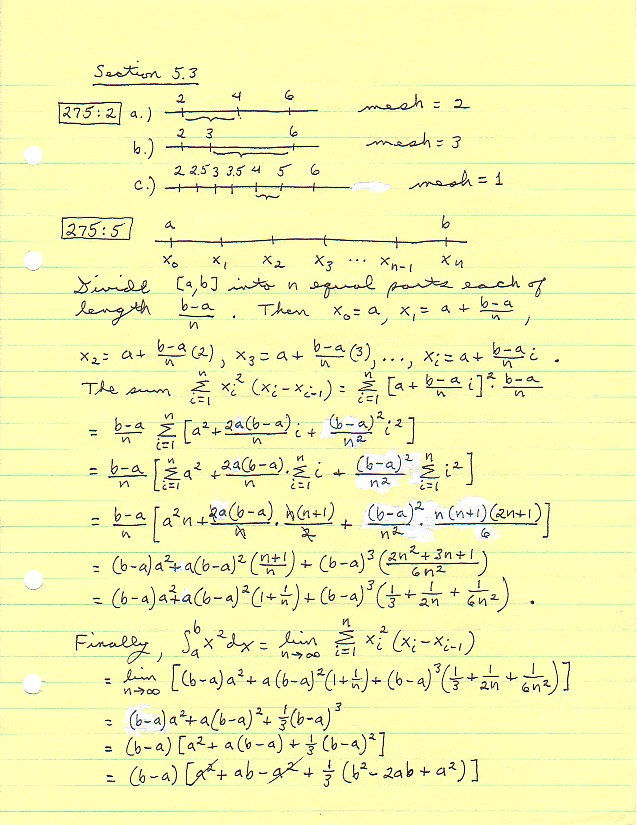 Section 5.3
275:2 a.) 2 4 6 mesh = 2
b.) 2 3 6 mesh = 3
c.) 2 2.5 3 3.5 4 5 6 mesh = 1
275:5 a b
x₀ x₁ x₂ x₃ ⋯ xₙ₋₁ xₙ
Divide [a,b] into n equal parts each of
length (b-a)/n . Then x₀ = a, x₁ = a + (b-a)/n ,
x₂ = a + (b-a)/n (2), x₃ = a + (b-a)/n (3), ..., xᵢ = a + (b-a)/n i .
The sum ∑_{i=1}^{n} xᵢ² (xᵢ - xᵢ₋₁) = ∑_{i=1}^{n} [a + (b-a)/n i]² · (b-a)/n
= (b-a)/n ∑_{i=1}^{n} [a² + 2a(b-a)/n i + (b-a)²/n² i²]
= (b-a)/n [∑_{i=1}^{n} a² + 2a(b-a)/n · ∑_{i=1}^{n} i + (b-a)²/n² ∑_{i=1}^{n} i²]
= (b-a)/n [a²n + 2a(b-a)/n · n(n+1)/2 + (b-a)²/n² · n(n+1)(2n+1)/6]
= (b-a)a² + a(b-a)² ((n+1)/n) + (b-a)³ ((2n²+3n+1)/6n²)
= (b-a)a² + a(b-a)² (1 + 1/n) + (b-a)³ (1/3 + 1/2n + 1/6n²) .
Finally, ∫_a^b x² dx = lim_{n→∞} ∑_{i=1}^{n} xᵢ² (xᵢ - xᵢ₋₁)
= lim_{n→∞} [(b-a)a² + a(b-a)² (1 + 1/n) + (b-a)³ (1/3 + 1/2n + 1/6n²)]
= (b-a)a² + a(b-a)² + 1/3 (b-a)³
= (b-a) [a² + a(b-a) + 1/3 (b-a)²]
= (b-a) [a² + ab - a² + 1/3 (b² - 2ab + a²)]